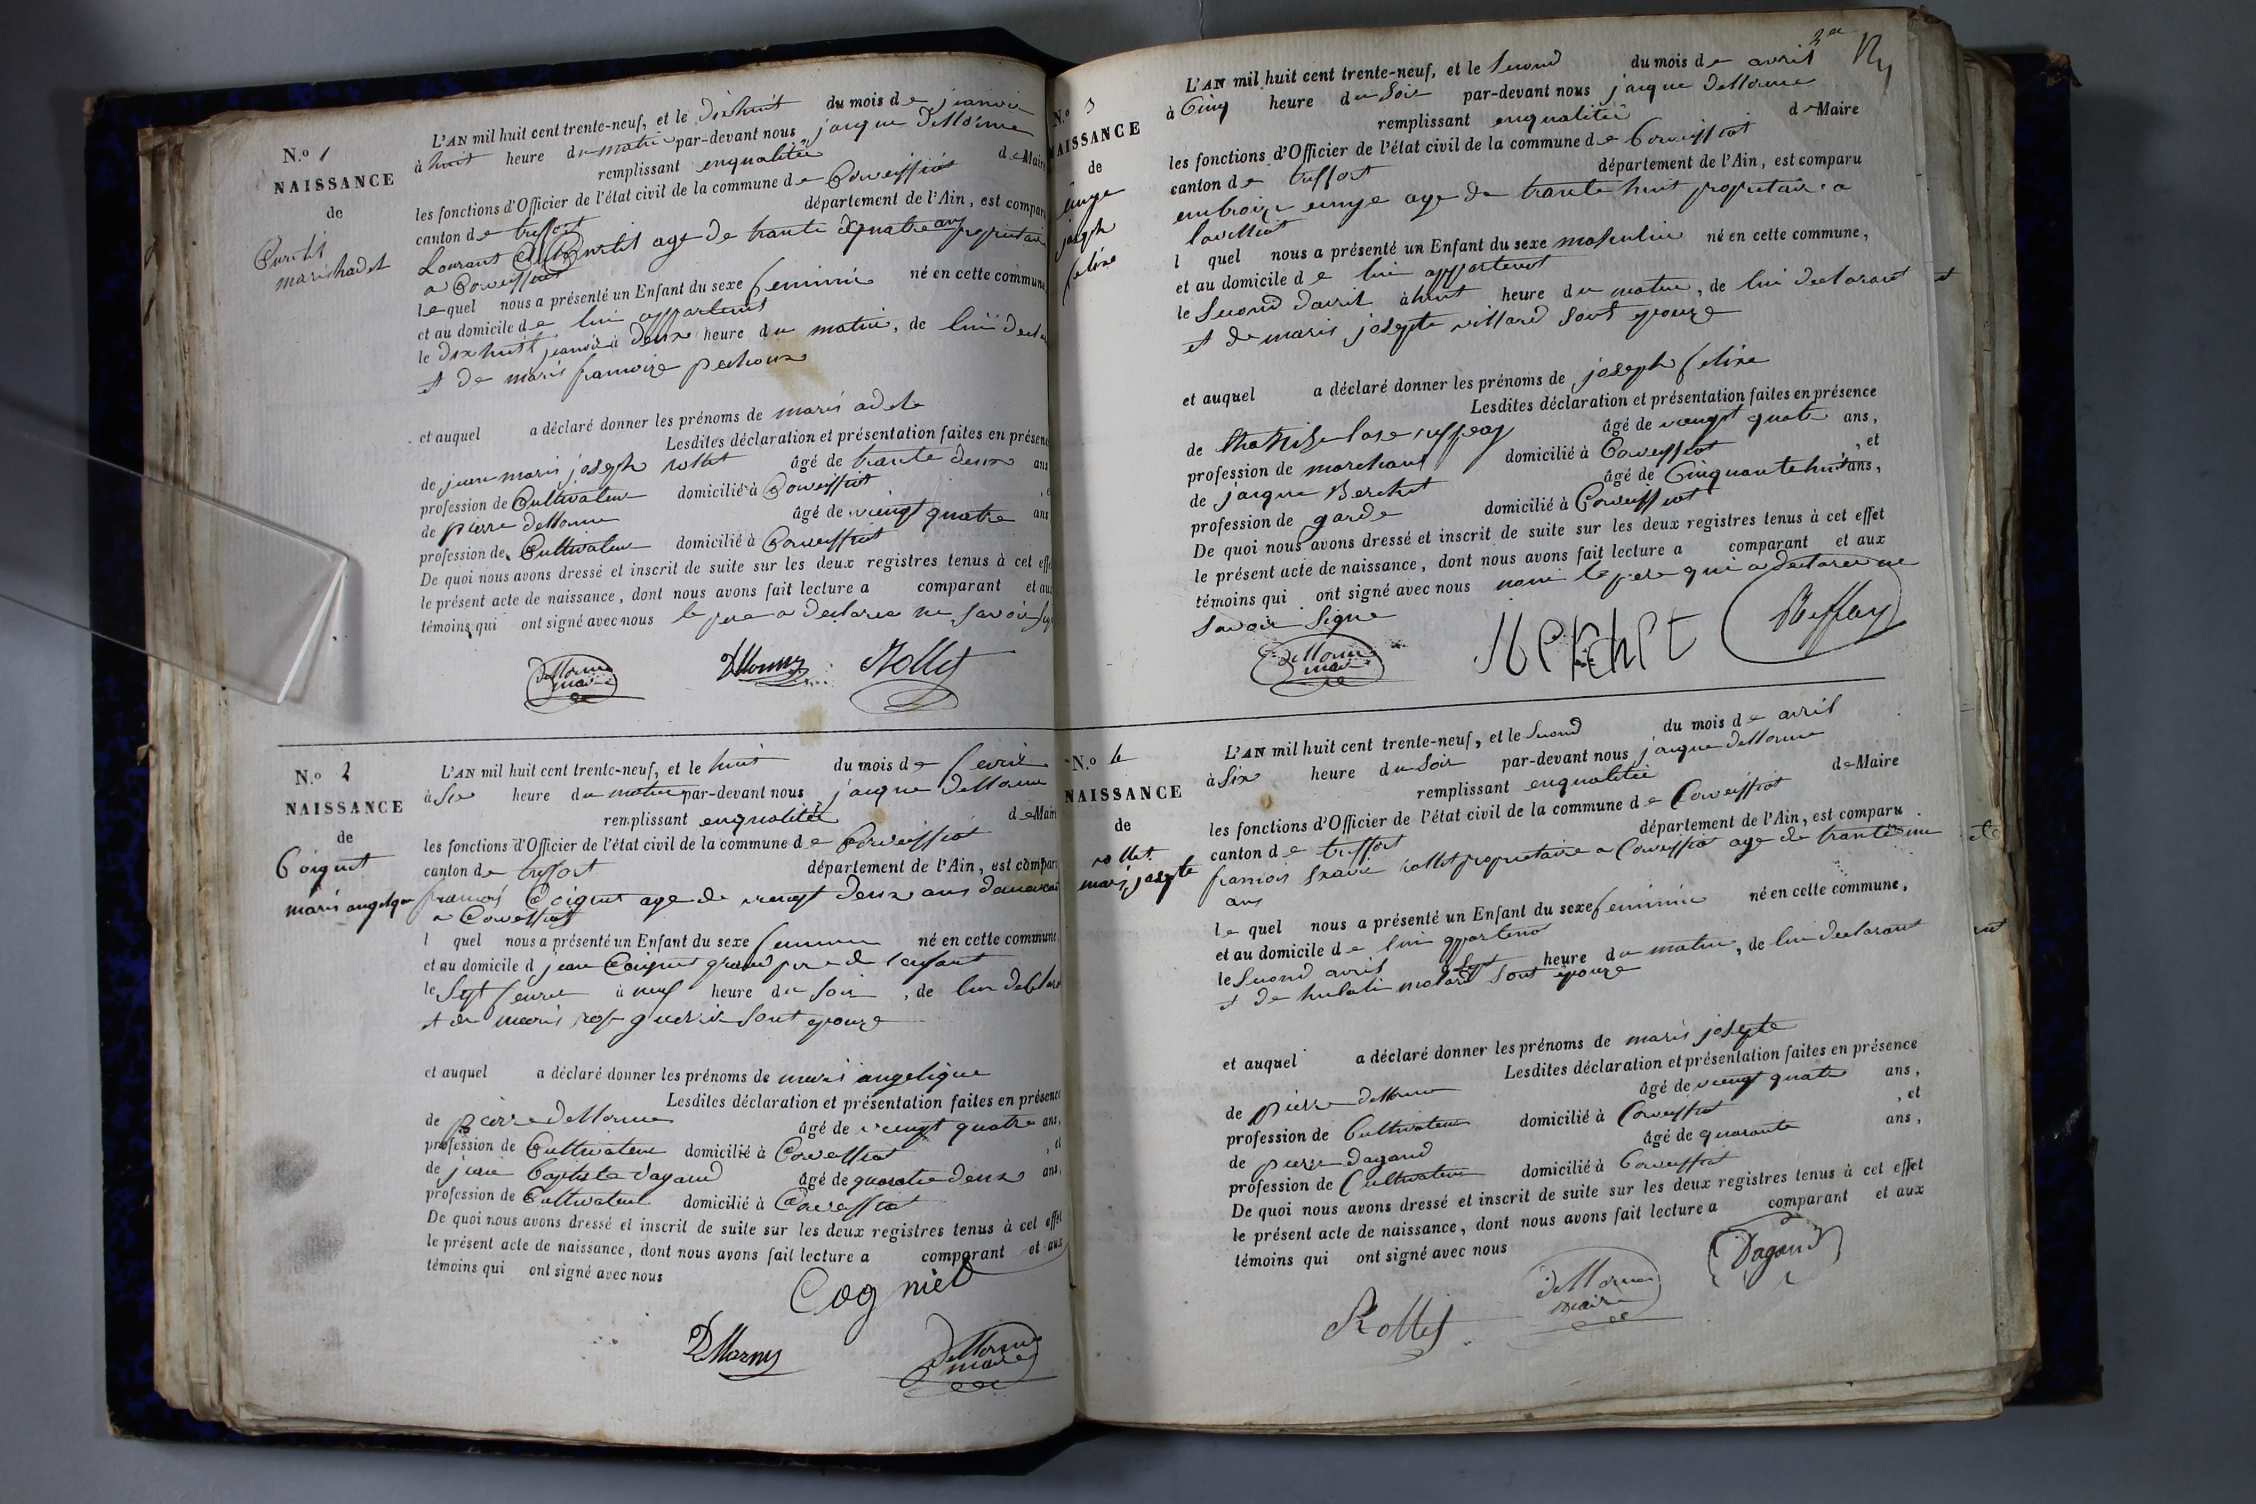 N.º 1
NAISSANCE
de
Curtil
marie adel
L'AN mil huit cent trente-neuf, et le dix huit du mois de janvie
à huit heure du matin par-devant nous jacque dellorme
remplissant enqualitée de Maire
les fonctions d'Officier de l'état civil de la commune de Corveissiat
canton de treffort département de l'Ain, est comparu
Laurant Curtil age de trante quatre ans propriétaire
a Corveissiat
le quel nous a présenté un Enfant du sexe feminin né en cette commune
et au domicile de lui appartenit
le dix huit janvie à deux heure du matin, de lui decla
et de marie francoize pechoux
et auquel a déclaré donner les prénoms de marie adele
Lesdites déclaration et présentation faites en présence
de jean marie joseph rollet âgé de trante deux ans
profession de Cultivateur domicilié à Corveissiat
de pierre dellorme âgé de vieingt quatre ans
profession de Cultivateur domicilié à Corveissiat
De quoi nous avons dressé et inscrit de suite sur les deux registres tenus à cet effe
le présent acte de naissance, dont nous avons fait lecture a comparant et au
témoins qui ont signé avec nous le pere a declaree ne savoir sig
Dellorme
maire
Dllormes Rollet
N.º 2
NAISSANCE
de
Coignet
marie angelique
L'AN mil huit cent trente-neuf, et le huit du mois de fevrie
à Six heure du matin par-devant nous jacque dellorme
remplissant enqualitée de Mair
les fonctions d'Officier de l'état civil de la commune de Corveissiat
canton de treffort département de l'Ain, est compar
francois Coignet age de vieingt deux ans
a Corveissiat
l quel nous a présenté un Enfant du sexe né en cette commune
et au domicile d jean Coignet grand pere de lenfant
le Sept fevrie à neuf heure du soir, de lui declara
et de marie rose sont epouze
et auquel a déclaré donner les prénoms de marie angelique
Lesdites déclaration et présentation faites en présence
de pierre dellorme âgé de vieingt quatre ans,
profession de Cultivateur domicilié à Corveissiat, et
de jean Baptiste dagand âgé de quarante deux ans,
profession de Cultivateur domicilié à Corveissiat
De quoi nous avons dressé et inscrit de suite sur les deux registres tenus à cet effet
le présent acte de naissance, dont nous avons fait lecture a comparant et aux
témoins qui ont signé avec nous
Cogniet
Dllormes dellorme
maire
N.º 3
NAISSANCE
de
joseph
felixe
L'AN mil huit cent trente-neuf, et le Second du mois de avril
à Cinq heure du Soir par-devant nous jacque dellorme
remplissant enqualitée de Maire
les fonctions d'Officier de l'état civil de la commune de Corveissiat
canton de treffort département de l'Ain, est comparu
age de trante huit propriétaire a
l quel nous a présenté un Enfant du sexe masculin né en cette commune,
et au domicile de lui appartenet
le Second davril à huit heure du matin, de lui declarant
et de marie josephte villard sont epouze
et auquel a déclaré donner les prénoms de joseph felixe
Lesdites déclaration et présentation faites en présence
de âgé de vieingt quatre ans,
profession de marchant domicilié à Corveissiat, et
de jacque Berchet âgé de Cinquante huit ans,
profession de garde domicilié à Corveissiat
De quoi nous avons dressé et inscrit de suite sur les deux registres tenus à cet effet
le présent acte de naissance, dont nous avons fait lecture a comparant et aux
témoins qui ont signé avec nous nom le pere qui a declaree ne
savoir signe
dellorme
maire
Berchet Reffay
N.º 4
NAISSANCE
de
rollet
marie josepte
L'AN mil huit cent trente-neuf, et le Second du mois de avril
à Six heure du Soir par-devant nous jacque dellorme
remplissant enqualitée de Maire
les fonctions d'Officier de l'état civil de la commune de Corveissiat
canton de treffort département de l'Ain, est comparu
francois Xavie rollet propriétaire a Corveissiat age de trante une
ans
le quel nous a présenté un Enfant du sexe feminin né en cette commune,
et au domicile de lui appartenet
le Second avril à Sept heure du matin, de lui declarant
et de molard sont epouze
et auquel a déclaré donner les prénoms de marie josepte
Lesdites déclaration et présentation faites en présence
de pierre dellorme âgé de vieingt quatre ans,
profession de Cultivateur domicilié à Corveissiat, et
de pierre dagand âgé de quarante ans,
profession de Cultivateur domicilié à Corveissiat
De quoi nous avons dressé et inscrit de suite sur les deux registres tenus à cet effet
le présent acte de naissance, dont nous avons fait lecture a comparant et aux
témoins qui ont signé avec nous
Rollet
dellorme
maire
Dagand